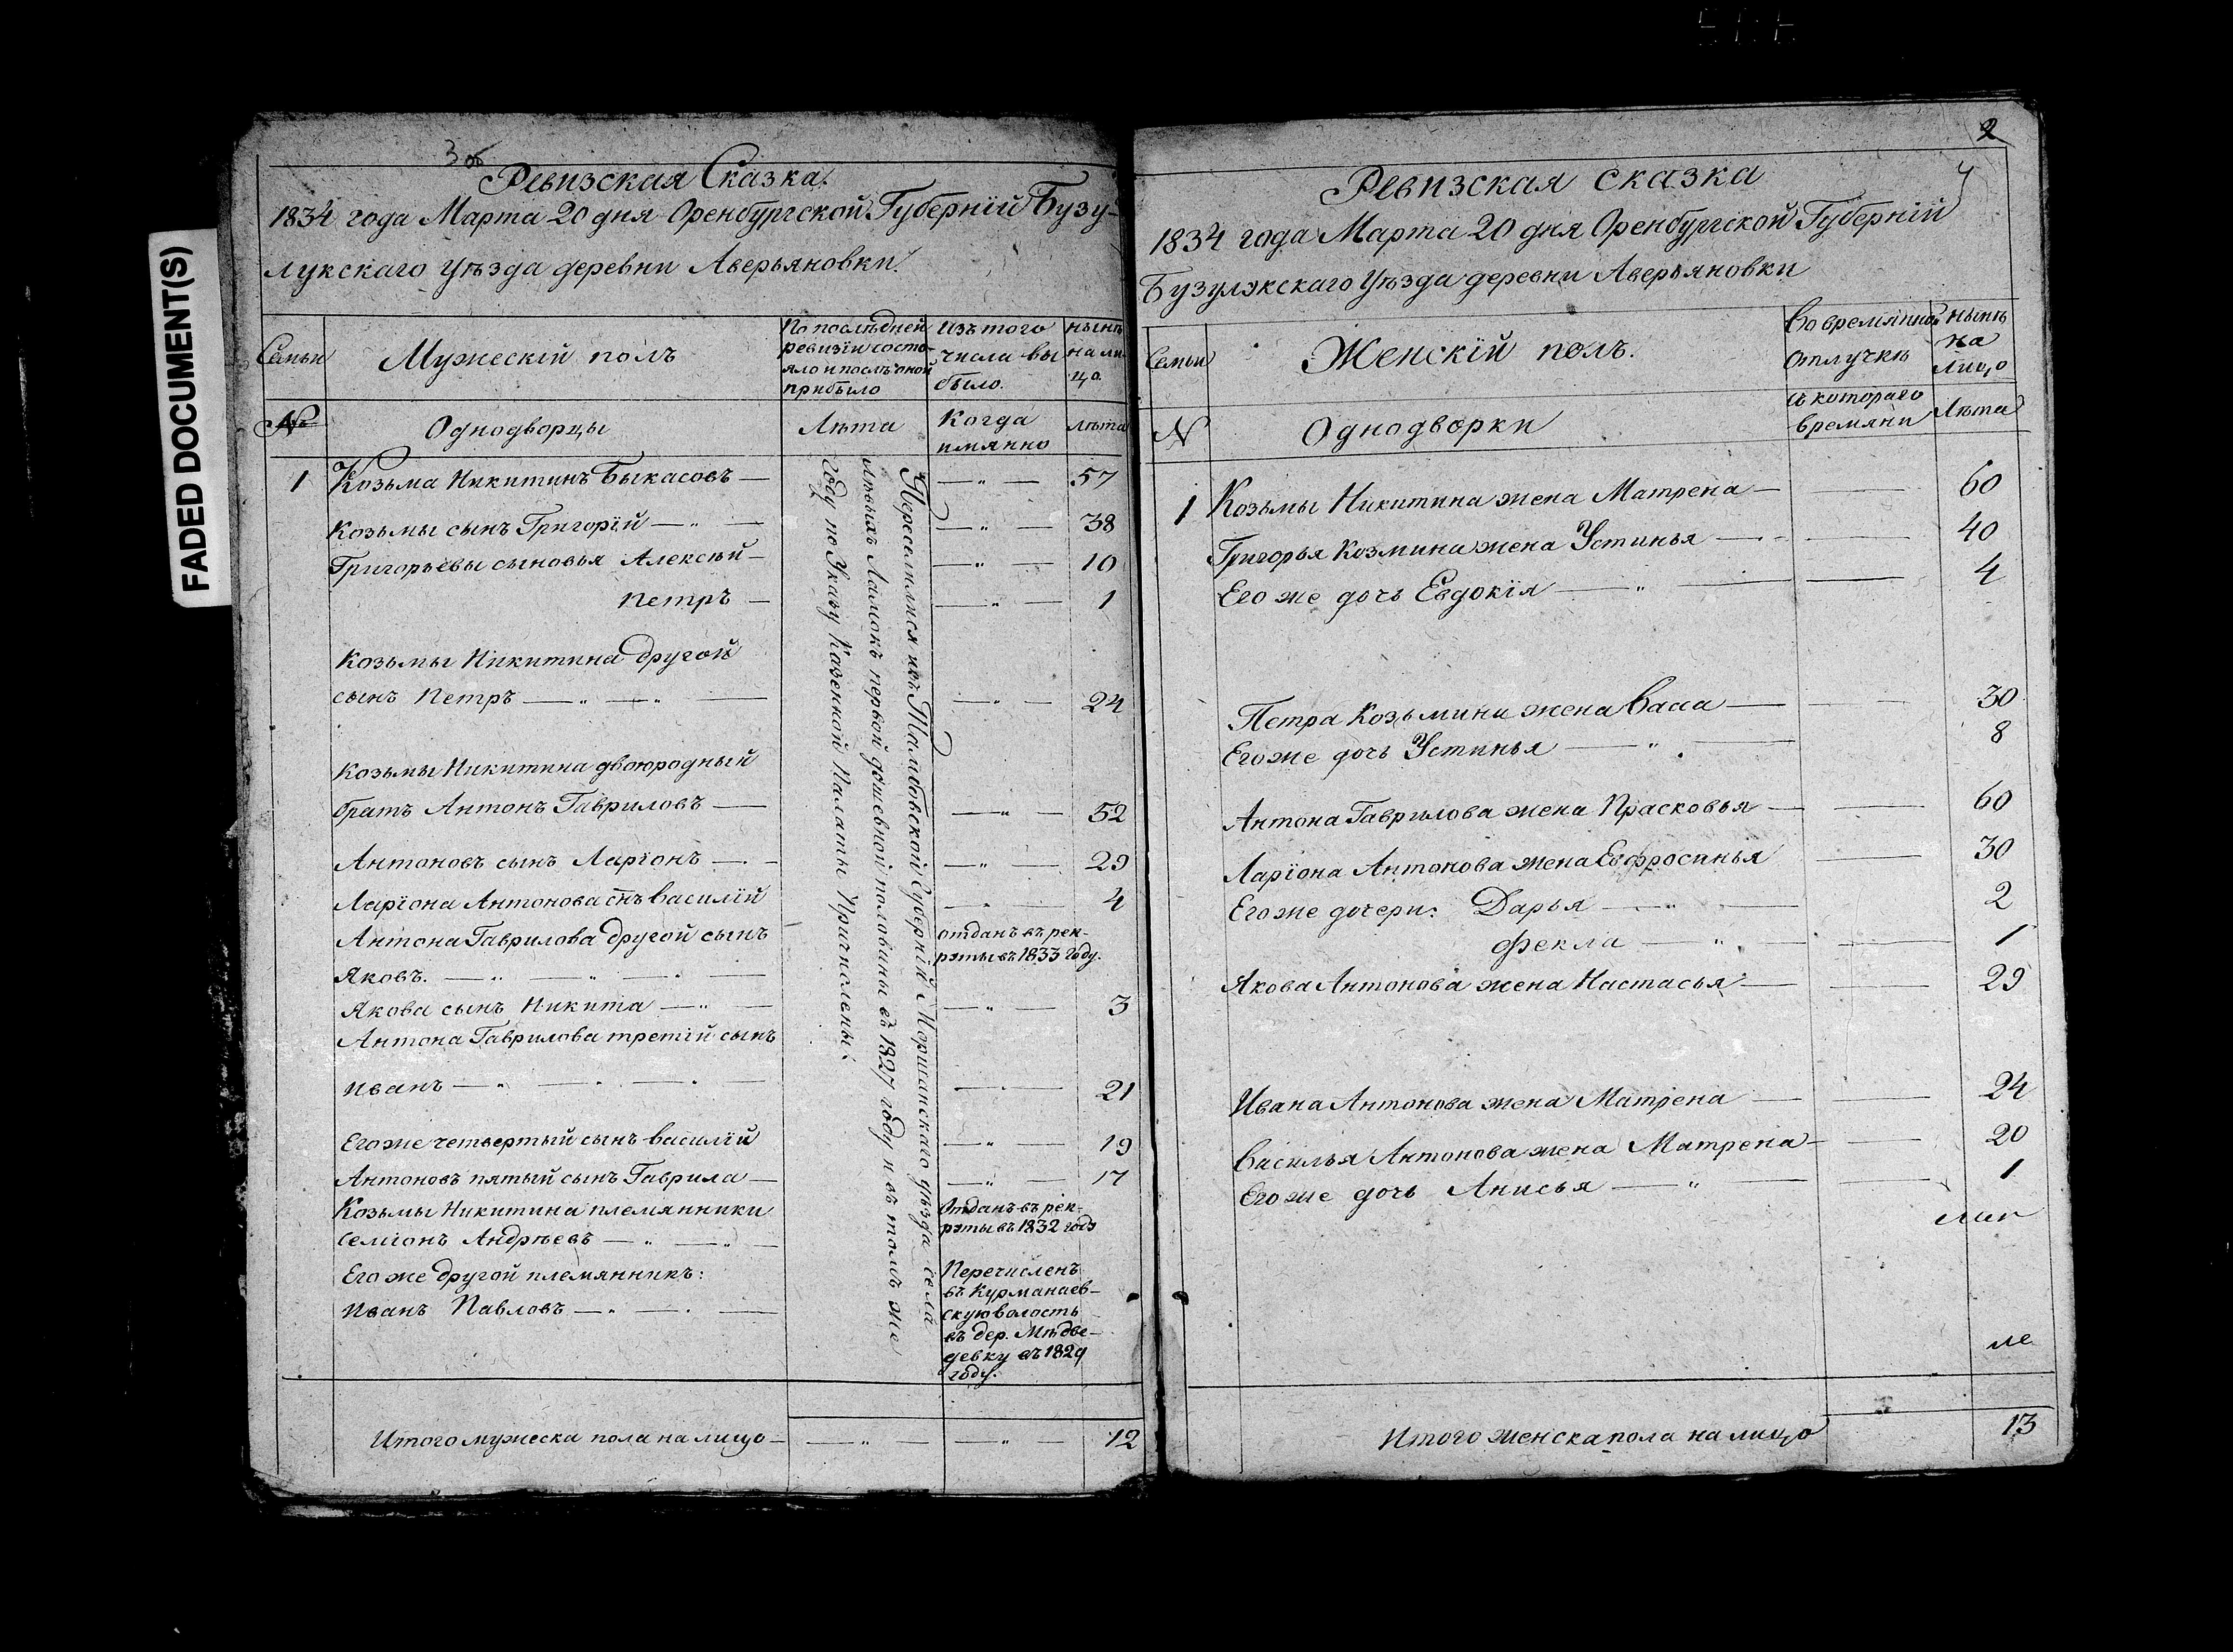 FADED DOCUMENT(S)
3 об
Ревизская Сказка.
1834 года Марта 20 дня Оренбургской Губерніи Бузу-
лукскаго Уѣзда деревни Аверьяновки.
Семьи
Мужескій полъ
По послѣдней
ревизіи состо-
яло и послѣ оной
прибыло
Изъ того
числа вы
было.
нынѣ
на ли-
цо.
№
Однодворцы
Лѣта
Когда
имянно
лѣта
1 Козьма Никитинъ Быкасовъ — — „ — 57
Козьмы сынъ Григорій — „ — — „ — 38
Григорьевы сыновья Алексѣй — — „ — 10
Петръ — — „ — 1
Козьмы Никитина другой
сынъ Петръ — „ — „ — — „ — 24
Козьмы Никитина двоюродный
братъ Антонъ Гавриловъ — — „ — 52
Антоновъ сынъ Ларіонъ — „ — — „ — 29
Ларіона Антонова сынъ Василій — „ — 4
Антона Гаврилова другой сынъ —
Яковъ. — „ — „ — „ —
отданъ въ рек-
руты въ 1833 году.
Якова сынъ Никита — „ — — „ — 3
Антона Гаврилова третій сынъ
Иванъ — „ — „ — „ — — „ — 21
Его же четвертый сынъ Василій — „ — 19
Антоновъ пятый сынъ Гаврила — — „ — 17
Козьмы Никитина племянники
Семіонъ Андрѣевъ — „ — „ —
Отданъ въ рек-
руты въ 1832 году
Его же другой племянникъ:
Иванъ Павловъ — „ — „ —
Перечисленъ
въ Курманаев-
скую волость
въ дер. Мѣдве-
девку въ 1829
году.
Переселились изъ Тамбовской Губерніи Моршанскаго уѣзда села
Лѣвыхъ Ламокъ первой душевной половины въ 1827 году и въ томъ же
году по Указу Казенной Палаты Причислены.
Итого мужеска пола на лицо — — „ — — „ — 12
2
4
Ревизская сказка
1834 года Марта 20 дня Оренбургской Губерніи
Бузулукскаго Уѣзда деревни Аверьяновки
Семьи
Женскій полъ.
Во времянной
отлучкѣ
нынѣ
на
лицо
N
Однодворки
съ котораго
времяни
Лѣта
1 Козьмы Никитина жена Матрена — — 60
Григорья Козмина жена Устинья — — 40
Его же дочь Евдокія — „ — — 4
Петра Козьмина жена Васса — — 30
Его же дочь Устинья — „ — 8
Антона Гаврилова жена Прасковья — — 60
Ларіона Антонова жена Евфросинья — 30
Его же дочери: Дарья — „ — 2
Фекла — „ — — 1
Якова Антонова жена Настасья — — 29
Ивана Антонова жена Матрена — — 24
Василья Антонова жена Матрена — — 20
Его же дочь Анисья — „ — — 1
Итого женска пола на лицо 13